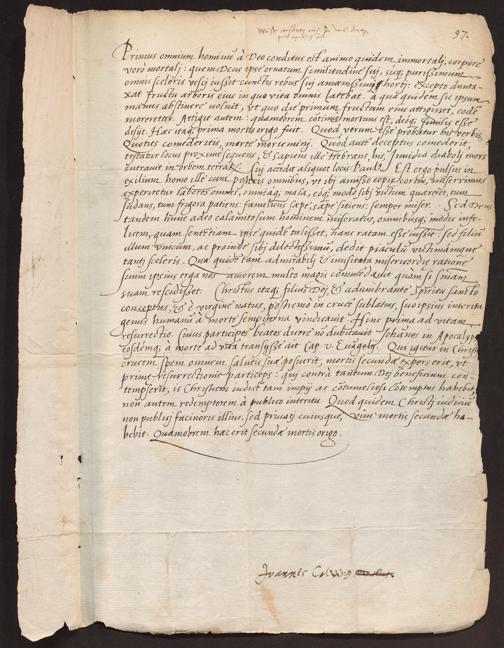 97.
Primus omnium hominũ à Deo conditus est animo quidem immortalj, corpore
verò mortalj: quem Deus ipse ornatum similitudine suj, suq; purissimum
omnis sceleris iussit cunctis rebus suj amœnissimj hortj: Excepto dunta-
xat fructu arboris eius in quo vita omnis latebat. à qua quidem se ipsum
manus abstinere voluit, ut quo die primum fructum eius attigisset, eodẽ
moreretur. Attigit autem: quamobrem mortuus est, deq; similis esse
desijt. Hæc itaq; prima mortis origo fuit. Quod verum esse probatur his verbis,
Quoties comederitis, morte morieminj. Quod autẽ deceptus comederit,
testatur locus proxime sequens, & sapiens ille Hebræus, his, Inuidia diabolj mors
intrauit in orbem terrarũ. accedat aliquot locis Paulus. Est ergo pulsus in
exilium homo ille cum posteris omnibus, ut ibj amisso eius hortus, miserrimus
experiretur labores omnes, omniaq; mala, eoq; modo sibj victum quæritet, tum
sudans, tum frigora patiens famelicus sæpe, sæpe sitiens: semper miser. Sed Deus
tandem hunc adeo calamitosum hominem miseratus, omnibusq; modis infe-
licem, quam sententiam ipse quidẽ tulisset, hanc ratam esse iussit: sed filium
illum vnicum, ac proinde sibj delectissimũ, dedit piaculũ victimamque
tantj sceleris. Qua quidẽ tam admirabilj & inusitata misericordiæ ratione
suum ipsius erga nos amorem multo magis commẽdauit quam si
suam rescidisset. Christus itaq; filius Dej, & adumbrante Spiritu sancto
conceptus, & è virgine natus, postremo in cruce sublatus, suo ipsius interitu
genus humanũ à morte sempiterna vindicauit. Hinc prima ad vitam
resurrectio. cuius participes beatos dicere nõ dubitauit Johãnes in Apocalyp
eosdemq; à morte ad vitã transijsse ait Cap. v. Euãgelij. Qui igitur in Christj
crucem spem omnem salutis suæ posuerit, mortis secundæ expers erit, et
primæ resurrectionis particeps: quj contrà tantum Dej beneficium con-
tempserit, is Christum iudicẽ tam impij ac contumeliosj contemptus habebit,
non autem redemptorem à publico interitu. Quod quidem Christj iudiciũ
non publicj facinoris illius, sed priuatj cuiusque, vim mortis secundæ ha-
bebit. Quamobrem hæc erit secundæ mortis origo.
Joannes